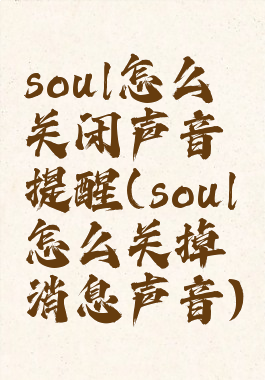 soul怎么
关闭声音
提醒(soul
怎么关掉
消息声音)